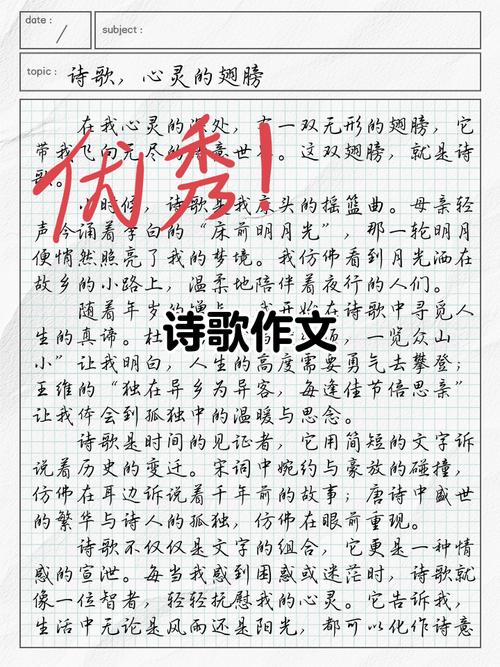 date :
subject :
topic : 诗歌，心灵的翅膀
在我心灵的深处，有一双无形的翅膀，它
带我飞向无尽的诗意世界。这双翅膀，就是诗
歌。
小时候，诗歌是我床头的摇篮曲。母亲轻
声吟诵着李白的“床前明月光”，那一轮明月
便悄然照亮了我的梦境。我仿佛看到月光洒在
故乡的小路上，温柔地陪伴着夜行的人们。
随着年岁的增长，我开始在诗歌中寻觅人
生的真谛。杜 一览众山
小”让我明白，人生的高度需要勇气去攀登；
王维的“独在异乡为异客，每逢佳节倍思亲”
让我体会到孤独中的温暖与思念。
诗歌是时间的见证者，它用简短的文字诉
说着历史的变迁。宋词中婉约与豪放的碰撞，
仿佛在耳边诉说着千年前的故事；唐诗中盛世
的繁华与诗人的孤独，仿佛在眼前重现。
诗歌不仅仅是文字的组合，它更是一种情
感的宣泄。每当我感到困惑或迷茫时，诗歌就
像一位智者，轻轻抚慰我的心灵。它告诉我，
生活中无论是风雨还是阳光，都可以化作诗意
优秀！
诗歌作文